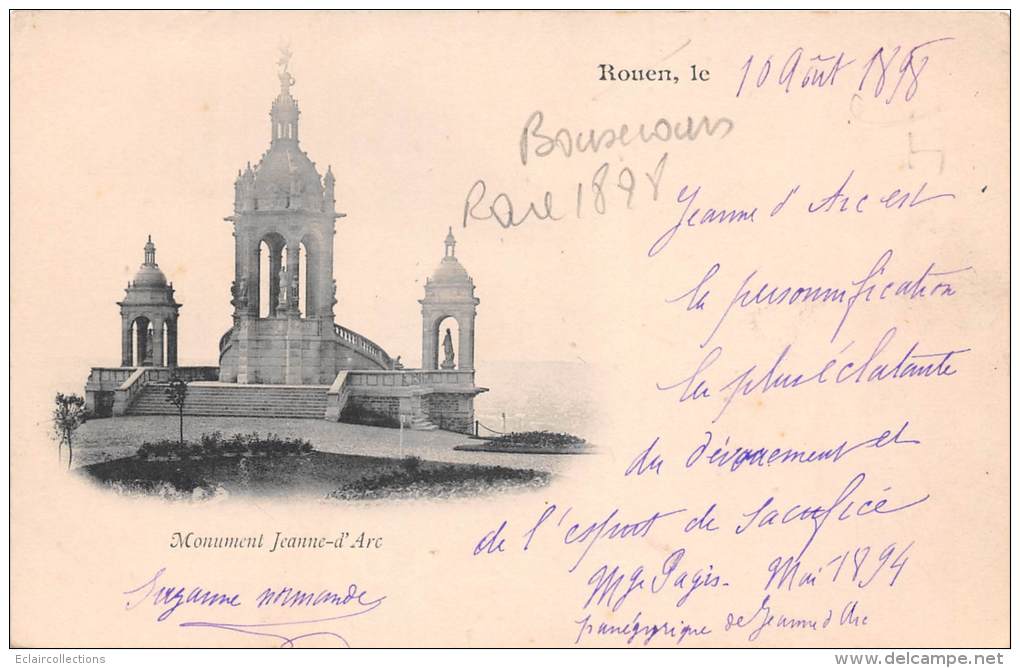 Rouen, le 10 Août 1898
Bonsecours
Rare 1898
Jeanne d'Arc est
la personnification
la plus éclatante
du dévouement et
de l'esprit de sacrifice
Mgr Pagis - Mai 1894
panégyrique de Jeanne d'Arc
Monument Jeanne-d'Arc
Suzanne normande
Eclaircollections
www.delcampe.net